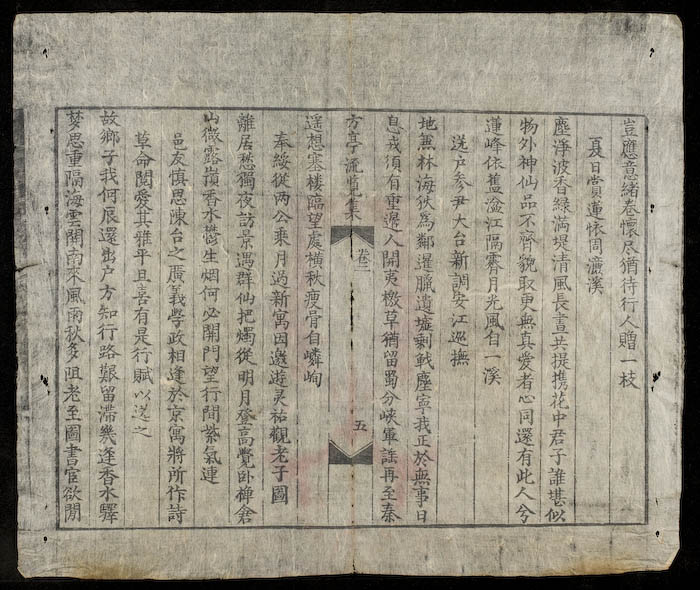 豈應意緒卷懷尽猶待行人贈一枝
夏日賞蓮懷周濂溪
塵淨波香綠满堤清風長晝共提携花中君子誰堪似
物外神仙品不齊貌取更無真愛者心同還有此人兮
蓮峰依舊湓江隔霽月光風自一溪
送户参尹大台新調安江巡撫
地無林海狄為鄰暹臘遺墟剩戰塵寧我正於無事日
息戎須有重邊人關夷檄草猶留蜀分峽軍謠再至秦
遥想塞樓臨望處橫秋瘦骨自嶙峋
方亭流覽集
卷二
五
奉綏從两公乘月過新寓因邀遊灵祐觀老子國
離居愁獨夜訪景遇群仙把燭從明月登高覺卧禅倉
山微露嶺香水欝生烟何必開門望行間紫氣連
邑友慎思陳台之廣義學政相逢於京寓將所作詩
草命閲愛其雅平且喜有是行賦以送之
故鄉子我何辰還出户方知行路艱留滞幾逢香水驛
梦思重隔海雲關南來風雨秋多阻老至圖書官欲閒